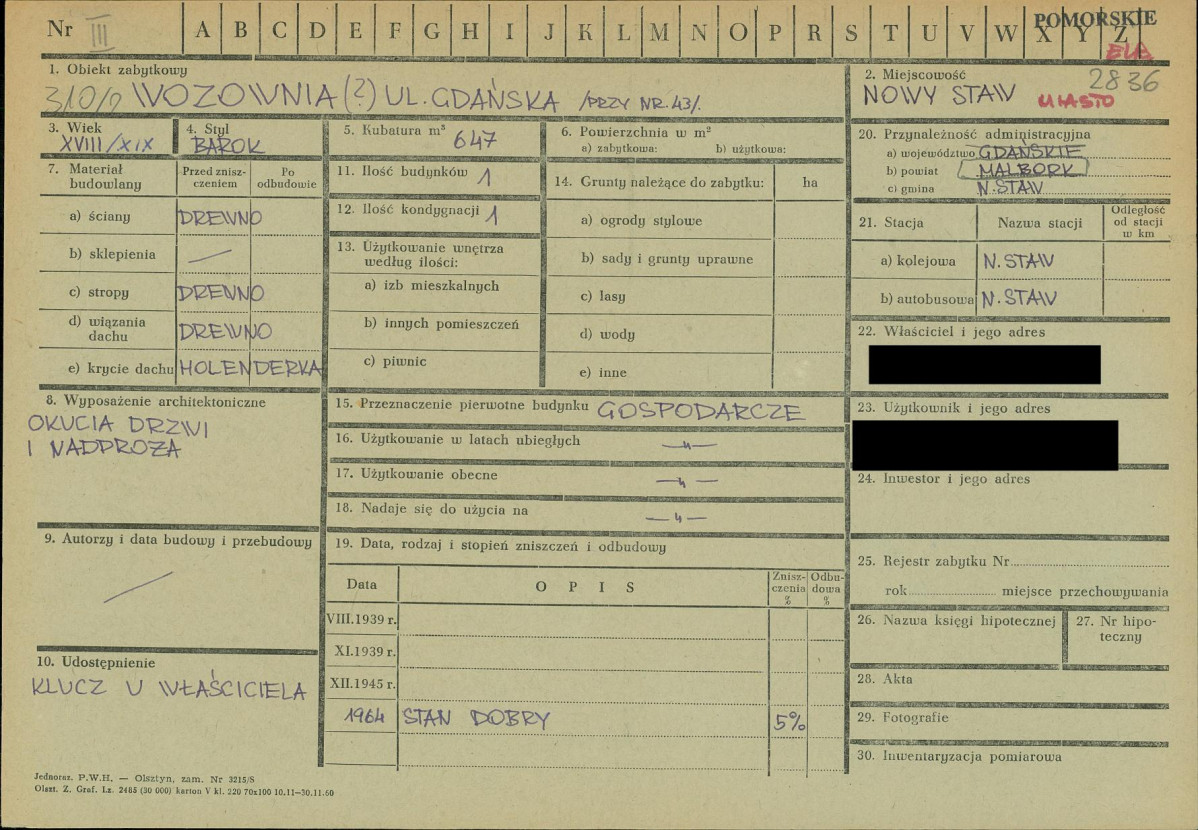 Nr III A B C D E F G H I J K L M N O P R S T U V W X Y Z POMORSKIE
ELB
1. Obiekt zabytkowy
310/2 WOZOWNIA (?) UL. GDAŃSKA /PRZY NR. 43/.
2. Miejscowość 2836
NOWY STAW MIASTO
3. Wiek
XVIII/XIX
4. Styl
BAROK
5. Kubatura m³ 647
6. Powierzchnia w m²
a) zabytkowa: b) użytkowa:
7. Materiał budowlany
Przed zniszczeniem
Po odbudowie
a) ściany DREWNO
b) sklepienia —
c) stropy DREWNO
d) wiązania dachu DREWNO
e) krycie dachu HOLENDERKA
8. Wyposażenie architektoniczne
OKUCIA DRZWI
I NADPROŻA
9. Autorzy i data budowy i przebudowy
—
10. Udostępnienie
KLUCZ U WŁAŚCICIELA
11. Ilość budynków 1
12. Ilość kondygnacji 1
13. Użytkowanie wnętrza
według ilości:
a) izb mieszkalnych
b) innych pomieszczeń
c) piwnic
14. Grunty należące do zabytku: ha
a) ogrody stylowe
b) sady i grunty uprawne
c) lasy
d) wody
e) inne
15. Przeznaczenie pierwotne budynku GOSPODARCZE
16. Użytkowanie w latach ubiegłych —"—
17. Użytkowanie obecne —"—
18. Nadaje się do użycia na —"—
19. Data, rodzaj i stopień zniszczeń i odbudowy
Data O P I S Zniszczenia % Odbudowa %
VIII.1939 r.
XI.1939 r.
XII.1945 r.
1964 STAN DOBRY 5%
20. Przynależność administracyjna
a) województwo GDAŃSKIE
b) powiat MALBORK
c) gmina N. STAW
21. Stacja Nazwa stacji Odległość od stacji w km
a) kolejowa N. STAW
b) autobusowa N. STAW
22. Właściciel i jego adres
23. Użytkownik i jego adres
24. Inwestor i jego adres
25. Rejestr zabytku Nr
rok miejsce przechowywania
26. Nazwa księgi hipotecznej
27. Nr hipoteczny
28. Akta
29. Fotografie
30. Inwentaryzacja pomiarowa
Jednoraz. P.W.H. — Olsztyn, zam. Nr 3215/S
Olszt. Z. Graf. Lz. 2485 (30 000) karton V kl. 220 70x100 10.11—30.11.60